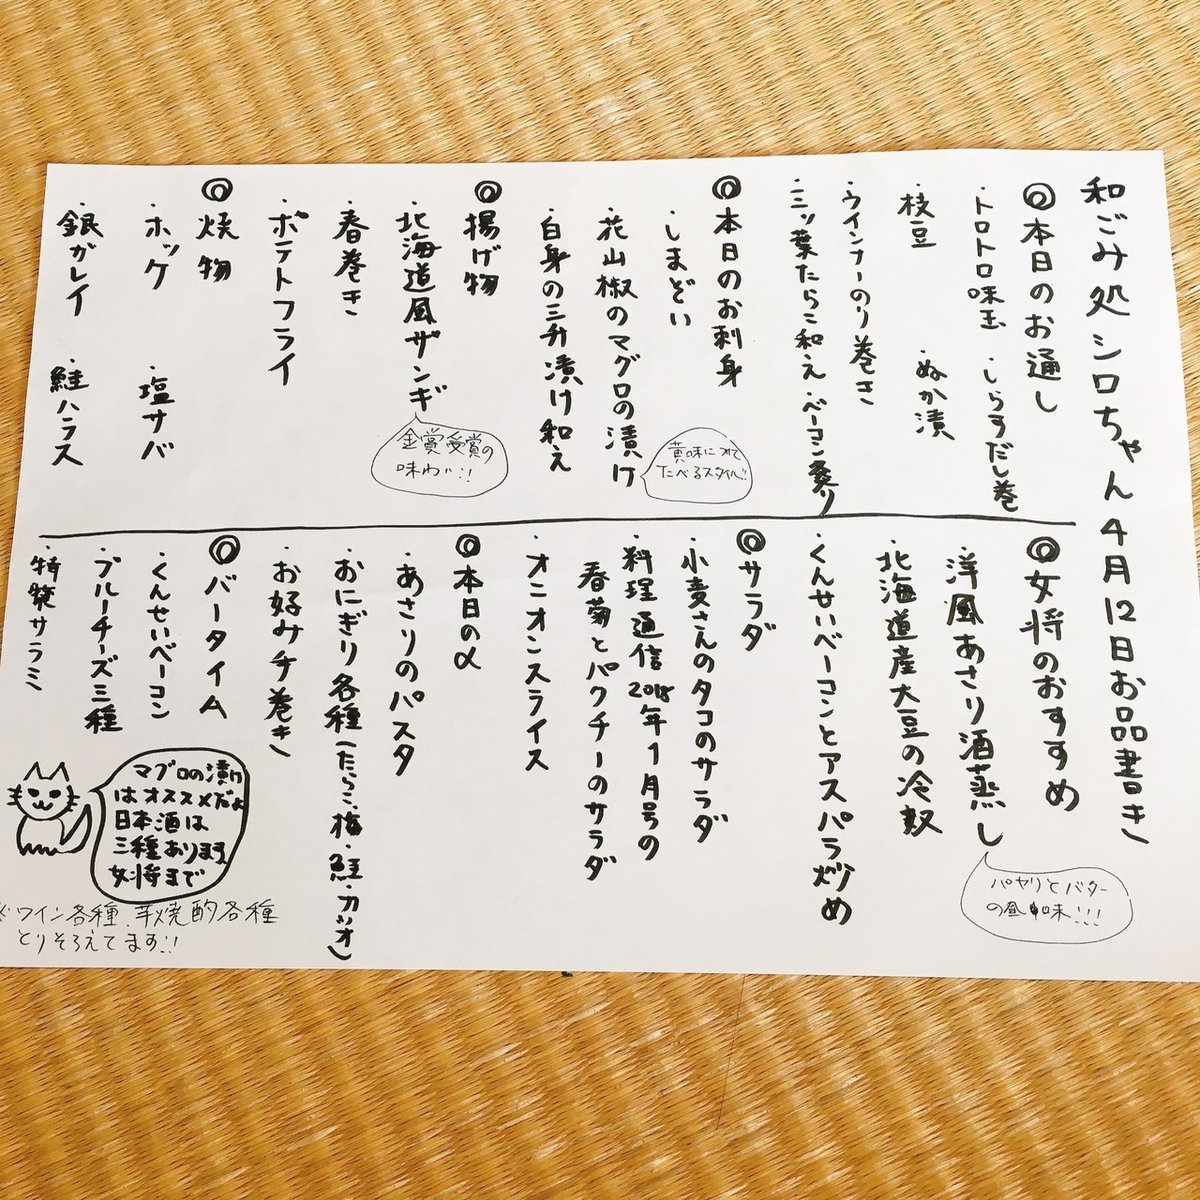 和ごみ処シロちゃん 4月12日お品書き
◎本日のお通し
・トロトロ味玉 ・しらすだし巻
・枝豆 ・ぬか漬
・ウインナーのり巻き
・三ッ葉たらこ和え ・ベーコン炙り
◎本日のお刺身
・しまどい
・花山椒のマグロの漬け
黄味につけて
たべるスタイル!!
・白身の三升漬け和え
◎揚げ物
・北海道風ザンギ
金賞受賞の
味わい!!
・春巻き
・ポテトフライ
◎焼物
・ホッケ ・塩サバ
・銀カレイ ・鮭ハラス
◎女将のおすすめ
・洋風あさり酒蒸し
パセリとバター
の風味!!!
・北海道産大豆の冷奴
・くんせいベーコンとアスパラ炒め
◎サラダ
・小麦さんのタコのサラダ
・料理通信2018年1月号の
春菊とパクチーのサラダ
・オニオンスライス
◎本日の〆
・あさりのパスタ
・おにぎり各種(たらこ・梅・鮭・カツオ)
・お好みチ巻き
◎バータイム
・くんせいベーコン
・ブルーチーズ三種
・特製サラミ
マグロの漬け
はオススメだよ
日本酒は
三種あります
女将まで
※ワイン各種、芋焼酎各種
とりそろえてます!!